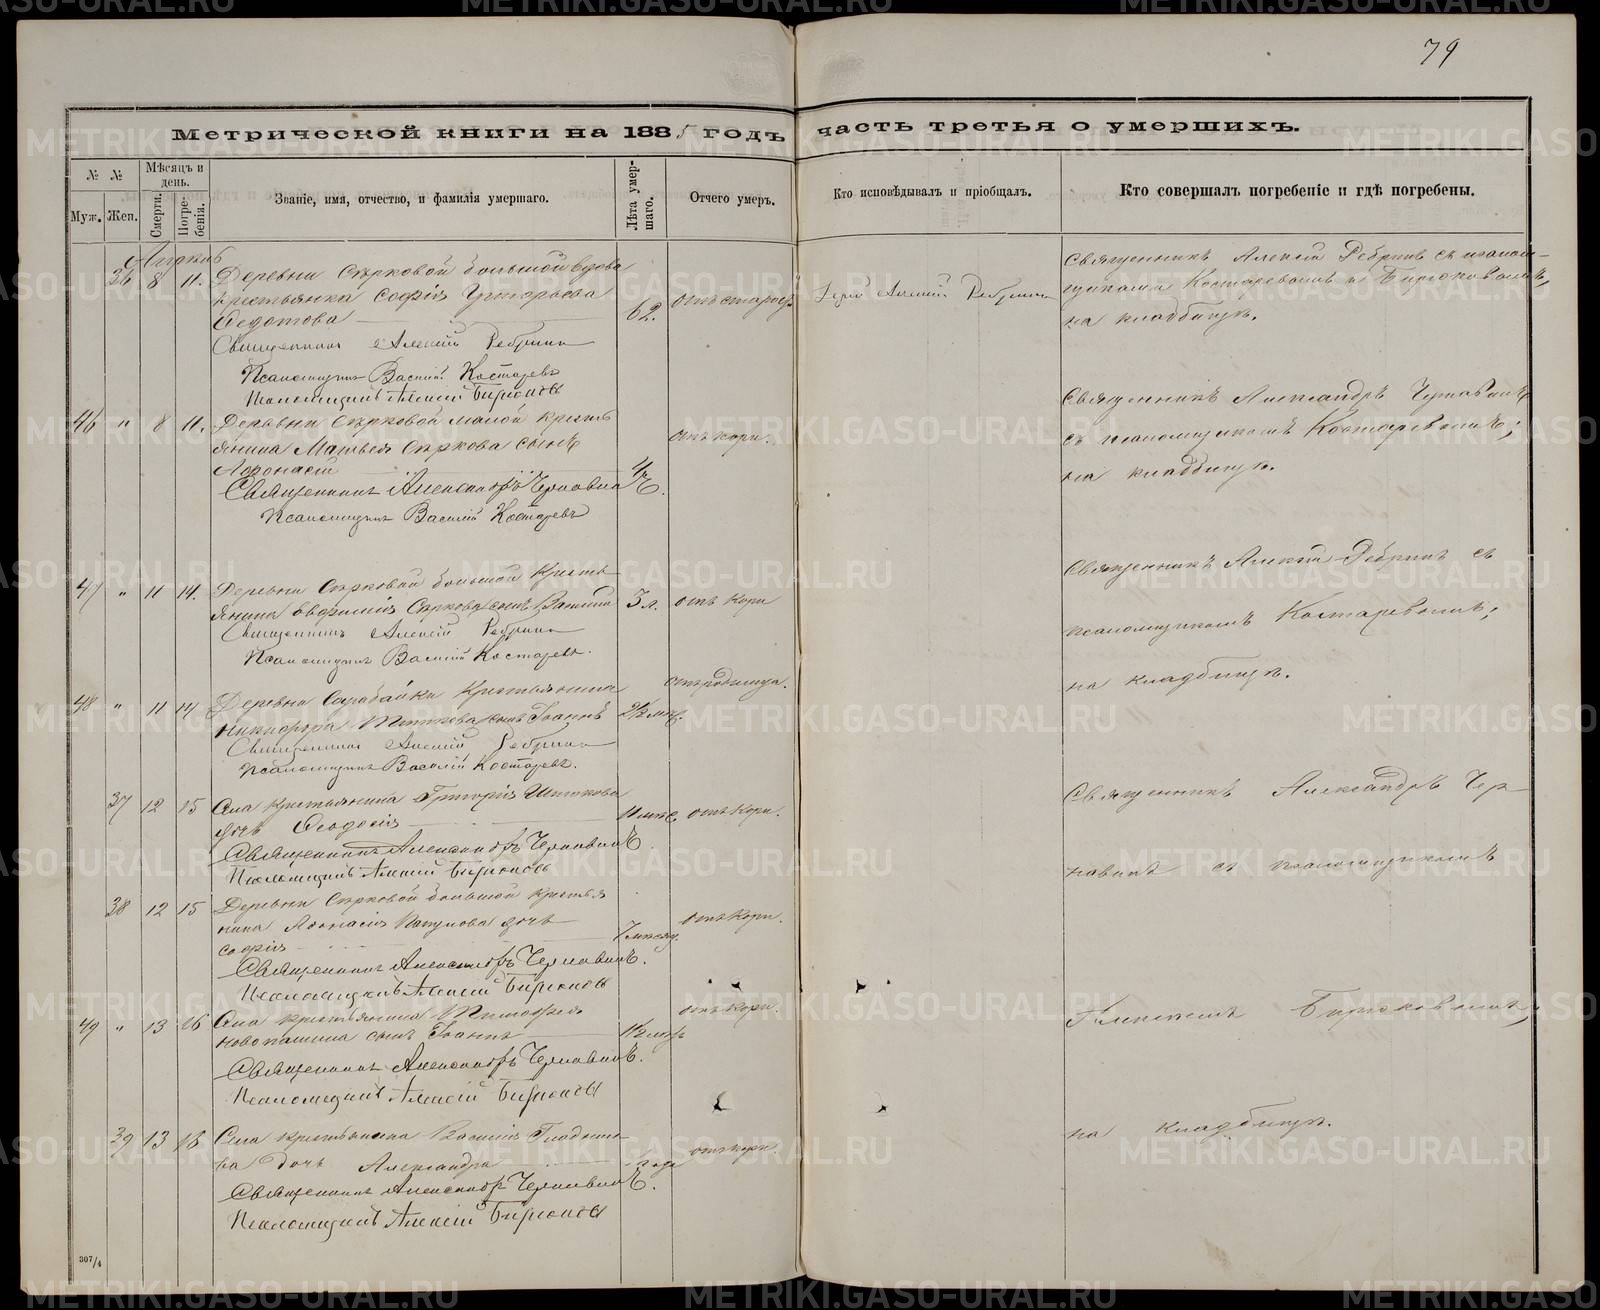 79
Метрической книги на 1885 годъ часть третья о умершихъ.
№ №
Муж. Жен.
Мѣсяцъ и день.
Смерти. Погребенія.
Званіе, имя, отчество, и фамилія умершаго.
Лѣта умершаго.
Отчего умеръ.
Кто исповѣдывалъ и пріобщалъ.
Кто совершалъ погребеніе и гдѣ погребены.
36 8 11. Деревни Сѣрковой большой вдова
крестьянка Софія Григорьева
Федотова 62. отъ старос. Іерей Алексій Ребринъ
Священникъ Алексій Ребринъ съ псалом-
щиками Костаревымъ и Бирюковымъ,
на кладбищѣ.
Священникъ Алексій Ребринъ
Псаломщикъ Василій Костаревъ
Псаломщикъ Алексій Бирюковъ
46 " 8 11. Деревни Сѣрковой малой кресть
янина Матвея Сѣркова сынъ
Афонасій отъ кори.
Священникъ Александръ Черновинъ
Псаломщикъ Василій Костаревъ
Священникъ Александръ
съ псаломщикомъ Костаревымъ;
на кладбищѣ.
47 " 11 14. Деревни Сѣрковой большой Кресть-
янина Сѣркова сынъ 3 л. отъ кори
Священникъ Алексій Ребринъ
Псаломщикъ Василій Костаревъ.
Священникъ Алексій Ребринъ съ
псаломщикомъ Костаревымъ;
на кладбищѣ.
48 " 11 14 Деревни Сарабайки Крестьянина
Никифора сынъ Іоаннъ 2½ мѣс. отъ родимца.
Священникъ Алексій Ребринъ
Псаломщикъ Василій Костаревъ.
37 12 15 Села крестьянина Григорія
дочь Феодосія отъ кори.
Священникъ Александръ Черновинъ
Псаломщикъ Алексій Бирюковъ
Священникъ Александръ Чер-
новинъ съ псаломщикомъ
38 12 15 Деревни Сѣрковой большой крестья
нина Афонасія дочь
Софія 7 мѣсяц. отъ кори.
Священникъ Александръ Черновинъ.
Псаломщикъ Алексій Бирюковъ
49 " 13 16 Села крестьянина Тимофея
Новопашина сынъ Іоаннъ отъ кори.
Священникъ Александръ Черновинъ.
Псаломщикъ Алексій Бирюковъ
Алексіемъ Бирюковымъ,
39 13 16 Села крестьянина Василія
дочь Александра отъ кори.
Священникъ Александръ Черновинъ.
Псаломщикъ Алексій Бирюковъ
на кладбищѣ.
307/4
METRIKI.GASO-URAL.RU